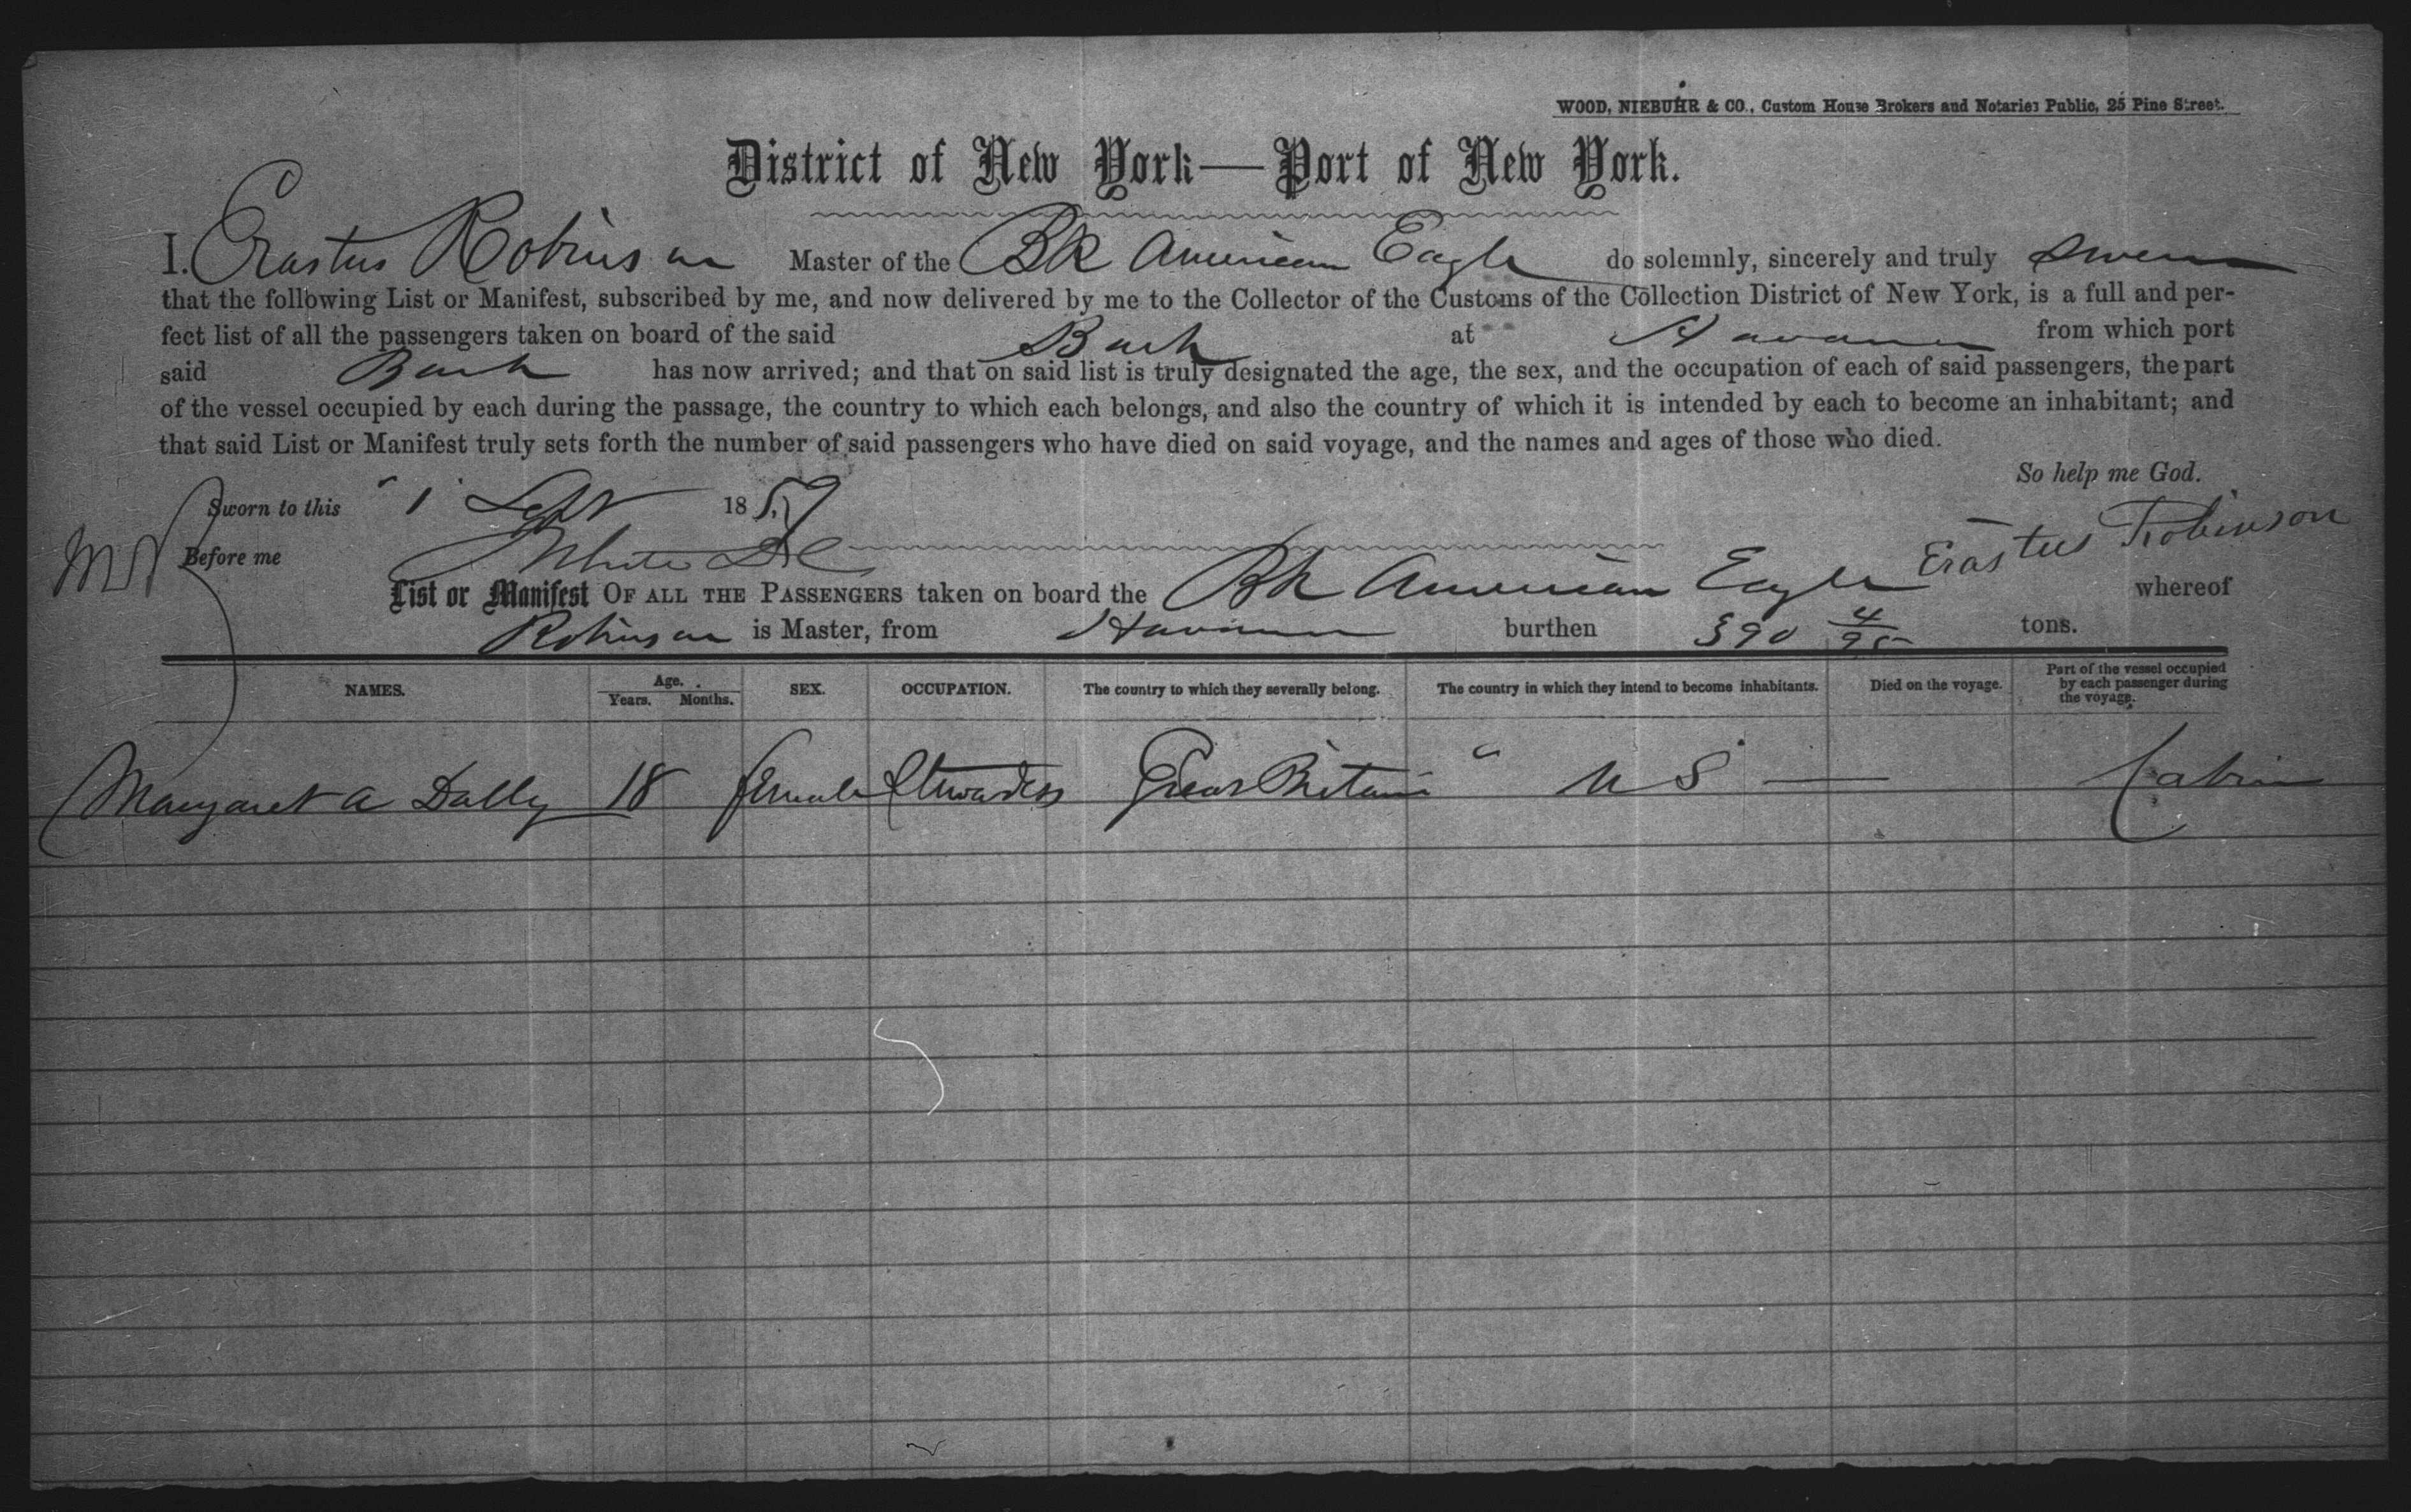 WOOD, NIEBUHR & CO., Custom House Brokers and Notaries Public, 25 Pine Street.
District of New York—Port of New York.
I, Erastus Robinson Master of the Bk American Eagle do solemnly, sincerely and truly swear
that the following List or Manifest, subscribed by me, and now delivered by me to the Collector of the Customs of the Collection District of New York, is a full and per-
fect list of all the passengers taken on board of the said Bark at Havana from which port
said Bark has now arrived; and that on said list is truly designated the age, the sex, and the occupation of each of said passengers, the part
of the vessel occupied by each during the passage, the country to which each belongs, and also the country of which it is intended by each to become an inhabitant; and
that said List or Manifest truly sets forth the number of said passengers who have died on said voyage, and the names and ages of those who died.
So help me God.
Sworn to this 1 Sept 1859
Erastus Robinson
Before me White
List or Manifest OF ALL THE PASSENGERS taken on board the Bk American Eagle whereof
Robinson is Master, from Havana burthen 390 4/95 tons.
NAMES. Age. Years. Months. SEX. OCCUPATION. The country to which they severally belong. The country in which they intend to become inhabitants. Died on the voyage. Part of the vessel occupied by each passenger during the voyage.
Margaret A Dally 18 female Stewardess Great Britain " U S — Cabin